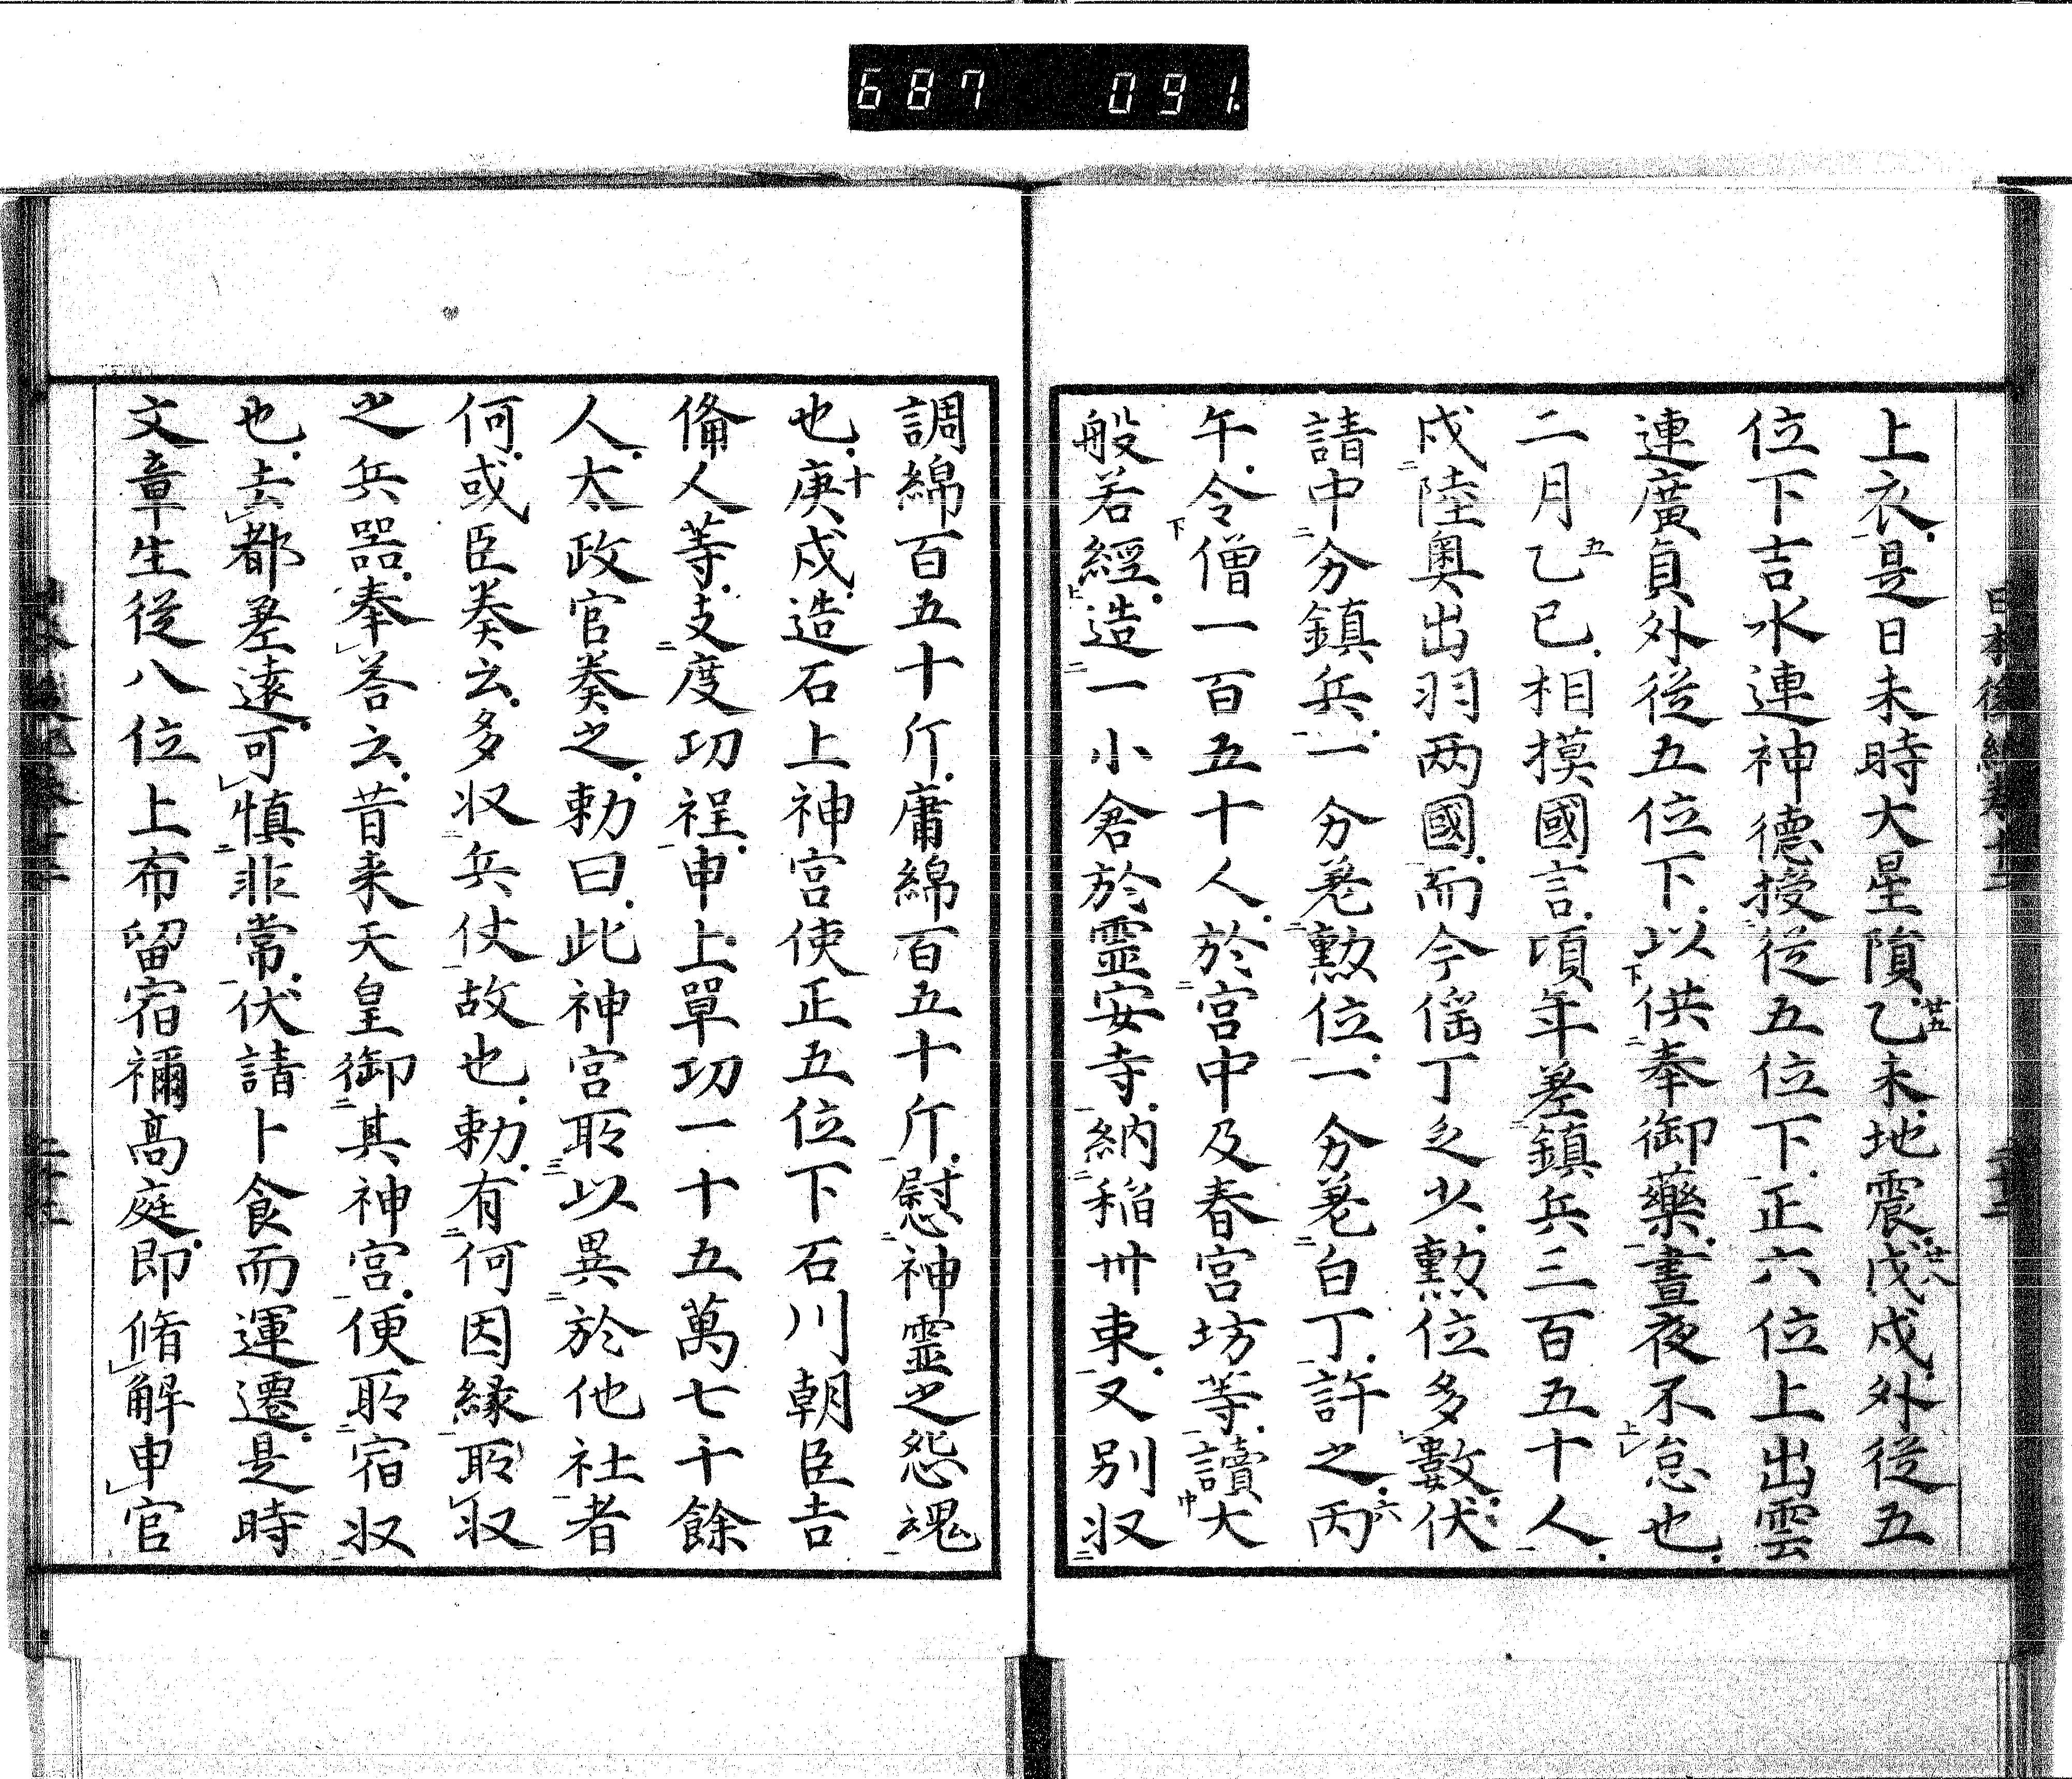 687 091
上衣是日未時大星隕乙未地震戊戌外從五
位下吉水連神德授從五位下正六位上出雲
連廣貞外從五位下以供奉御藥晝夜不怠也
二月乙巳相摸國言頃年差鎮兵三百五十人
戍陸奧出羽两國而今徭丁乏少勲位多數伏
請中分鎮兵一分差勲位一分差白丁許之丙
午令僧一百五十人於宮中及春宮坊等讀大
般若經造一小倉於霊安寺納稲卅束又別収
調綿百五十斤庸綿百五十斤慰神霊之怨魂
也庚戌造石上神宮使正五位下石川朝臣吉
備人等支度功程申上單功一十五萬七千餘
人太政官奏之勅曰此神宮所以異於他社者
何或臣奏云多収兵仗故也勅有何因縁所収
之兵器奉答云昔来天皇御其神宮便所宿収
也去都差遠可慎非常伏請卜食而運遷是時
文章生從八位上布留宿禰高庭即脩解申官